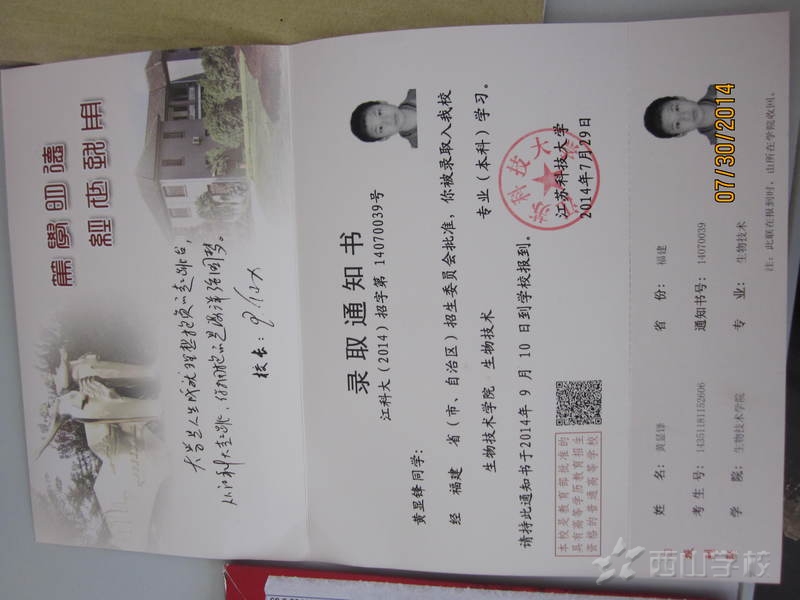 笃學明德
經世致用
大学是人生成就理想抱负的起跳台，
从江科大起跳，你拥抱的是海洋强国梦。
校长：
录取通知书
江科大（2014）招字第 14070039号
黄显锋同学：
经 福建 省（市、自治区）招生委员会批准，你被录取入我校
生物技术学院 生物技术 专业（本科）学习。
请持此通知书于2014年 9 月 10 日到学校报到。
江苏科技大学
2014年7月29日
本校是教育部批准的
具有高等学历教育招生
资格的普通高等学校
姓 名：黄显锋
省 份：福建
考生号：14351181152606
通知书号：14070039
学 院：生物技术学院
专 业：生物技术
注：此联在报到时，由所在学院收回。
07/30/2014
西山学校